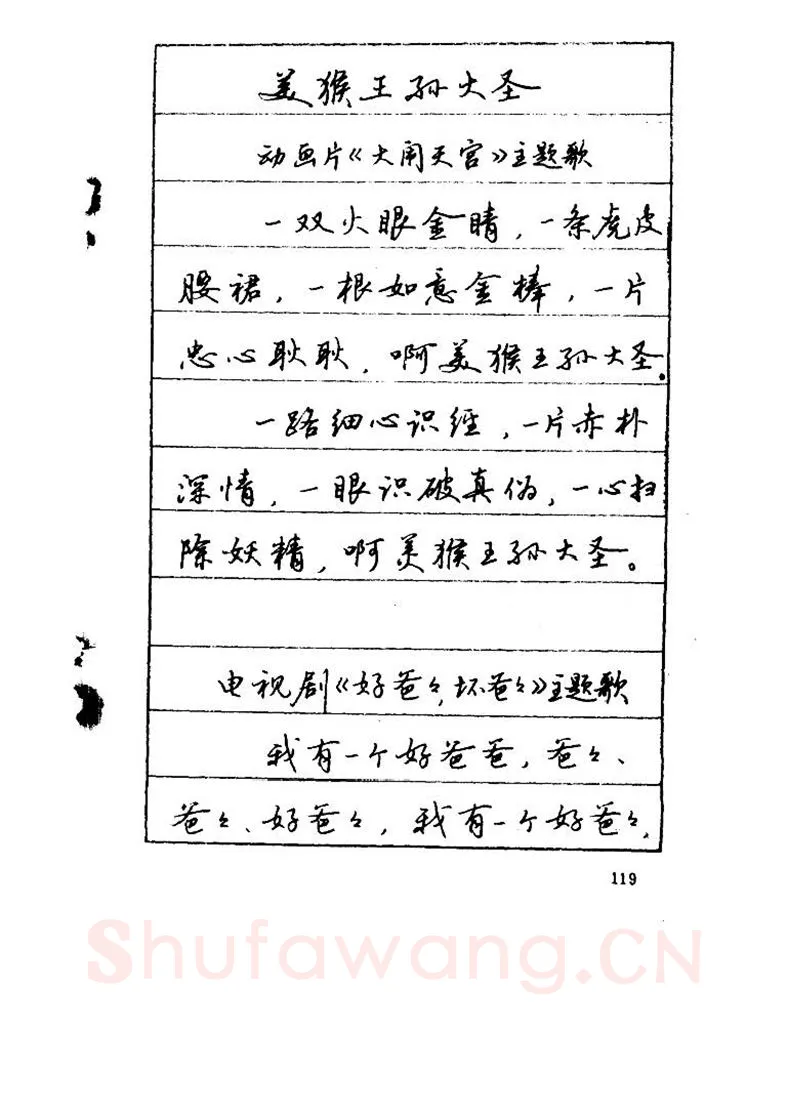 美猴王孙大圣
动画片《大闹天宫》主题歌
一双火眼金睛，一条虎皮
腰裙，一根如意金棒，一片
忠心耿耿，啊美猴王孙大圣.
一路细心识经，一片赤朴
深情，一眼识破真伪，一心扫
除妖精，啊美猴王孙大圣。
电视剧《好爸々,坏爸々》主题歌
我有一个好爸爸，爸々、
爸々、好爸々，我有一个好爸々,
119
Shufawang.CN